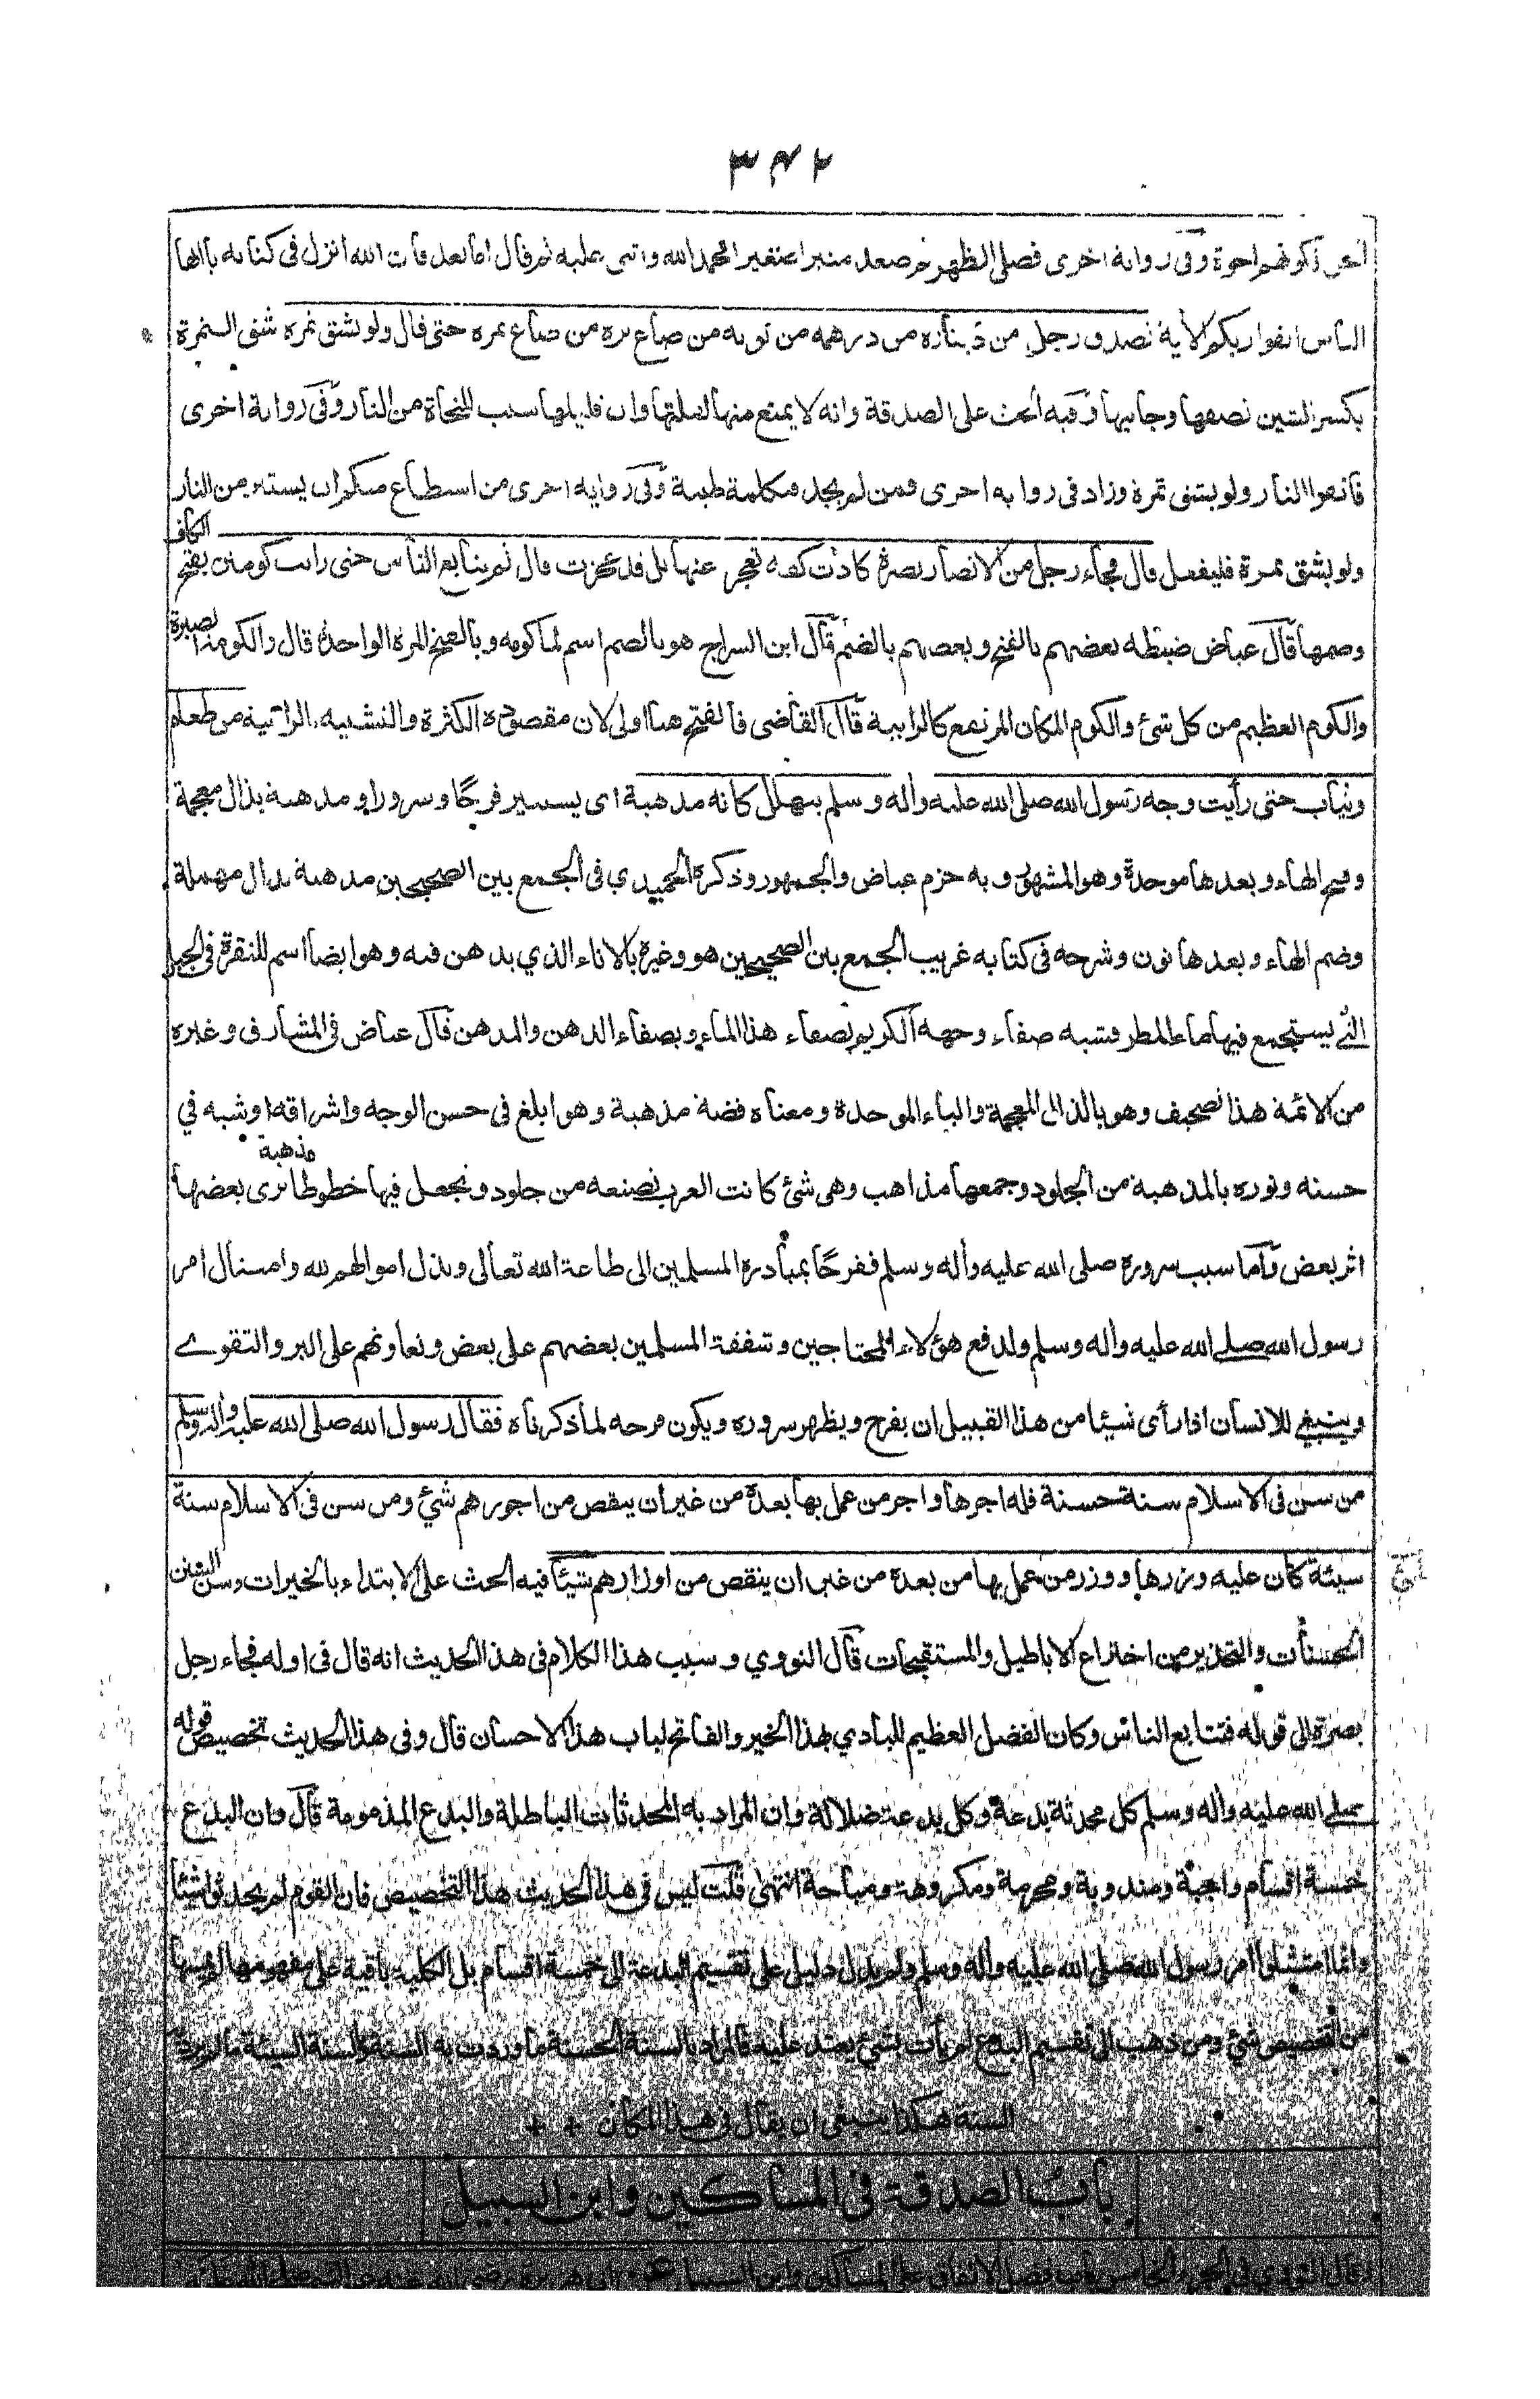 ٣٤٢
ذكونهم اخوة وفى رواية اخرى فصلى الظهر ثم صعد منبرا صغيرا فحمد الله واثنى عليه ثم قال اما بعد فان الله انزل فى كتابه يا ايها
الناس اتقوا ربكم الأية تصدق رجل من ديناره من درهمه من ثوبه من صاع بره من صاع تمره حتى قال ولو بشق تمرة شق التمرة
بكسر الشين نصفها وجانبها وفيه الحث على الصدقة وانه لا يمتنع منها لقلتها وان قليلها سبب للنجاة من النار وفى رواية اخرى
فاتقوا النار ولو بشق تمرة وزاد فى رواية اخرى فمن لم يجد فبكلمة طيبة وفى رواية اخرى من استطاع منكم ان يستتر من النار
ولو بشق تمرة فليفعل قال فجاء رجل من الانصار بصرة كادت كفه تعجز عنها بل قد عجزت قال ثم تتابع الناس حتى رايت كومين بفتح الكاف
وضمها قال عياض ضبطه بعضهم بالفتح وبعضهم بالضم قال ابن السراج هو بالضم اسم لما كومه وبالفتح المرة الواحدة قال والكومة الصبرة
والكوم العظيم من كل شئ والكوم المكان المرتفع كالرابية قال القاضى فالفتح هنا اولى لان مقصوده الكثرة والتشبيه بالرابية من طعام
وثياب حتى رأيت وجه رسول الله صلى الله عليه وأله وسلم يتهلل كانه مذهبة اى يستنير فرحًا وسرورا ومذهبة بذال معجمة
وفتح الهاء وبعدها موحدة وهو المشهور وبه جزم عياض والجمهور وذكره الحميدي فى الجمع بين الصحيحين مدهنة بدال مهملة
وضم الهاء وبعدها نون وشرحه فى كتابه غريب الجمع بين الصحيحين هو وغيره بالاناء الذي يدهن فيه وهو ايضا اسم للنقرة فى الجبل
التي يستجمع فيها ماء المطر فشبه صفاء وجهه الكريم بصفاء هذا الماء وبصفاء الدهن والمدهن قال عياض فى المشارق وغيره
من الائمة هذا تصحيف وهو بالذال المعجمة والباء الموحدة ومعناه فضة مذهبة وهو ابلغ فى حسن الوجه واشراقه او شبه في
حسنه ونوره بالمذهبة من الجلود وجمعها مذاهب وهى شئ كانت العرب تصنعه من جلود وتجعل فيها خطوطا مذهبة يرى بعضها
اثر بعض وأما سبب سروره صلى الله عليه وأله وسلم ففرحًا بمبادرة المسلمين الى طاعة الله تعالى وبذل اموالهم لله وامتثال امر
رسول الله صلى الله عليه وأله وسلم ولدفع هؤلاء المحتاجين وشفقة المسلمين بعضهم على بعض وتعاونهم على البر والتقوے
وينبغي للانسان اذا رأى شيئا من هذا القبيل ان يفرح ويظهر سروره ويكون فرحه لما ذكرناه فقال رسول الله صلى الله عليه وأله وسلم
من سن فى الاسلام سنة حسنة فله اجرها واجر من عمل بها بعده من غير ان ينقص من اجورهم شئ ومن سن فى الاسلام سنة
سيئة كان عليه وزرها ووزر من عمل بها من بعده من غير ان ينقص من اوزارهم شيئا فيه الحث على الابتداء بالخيرات وسن السنن
الحسنات والتحذير من اختراع الاباطيل والمستقبحات قال النووي وسبب هذا الكلام فى هذا الحديث انه قال فى اوله فجاء رجل
بصرة الى قوله فتتابع الناس وكان الفضل العظيم للبادي بهذا الخير والفاتح لباب هذا الاحسان قال وفى هذا الحديث تخصيص قوله
صلى الله عليه وأله وسلم كل محدثة بدعة وكل بدعة ضلالة وان المراد به المحدثات الباطلة والبدع المذمومة قال وان البدع
خمسة اقسام واجبة ومندوبة ومحرمة ومكروهة ومباحة انتهى قلت ليس فى هذا الحديث هذا التخصيص فان القوم لم يحدثوا شيئا
وانما امتثلوا امر رسول الله صلى الله عليه وأله وسلم ولم يدل دليل على تقسيم البدعة الى خمسة اقسام بل الكلية باقية على مفهومها لم يمسها
من تخصيص شئ ومن ذهب الى تقسيم البدع لم يأت بشئ يعتد عليه فالمراد بالسنة الحسنة ما وردت به السنة والسنة السيئة ما لم يرد
السنة هكذا ينبغى ان يقال فى هذا المكان + +
باب الصدقة فى المساكين وابن السبيل
وقال النووي فى الجزء الخامس باب فضل الانفاق على المساكين وابن السبيل عن ابى هريرة رضى الله عنه